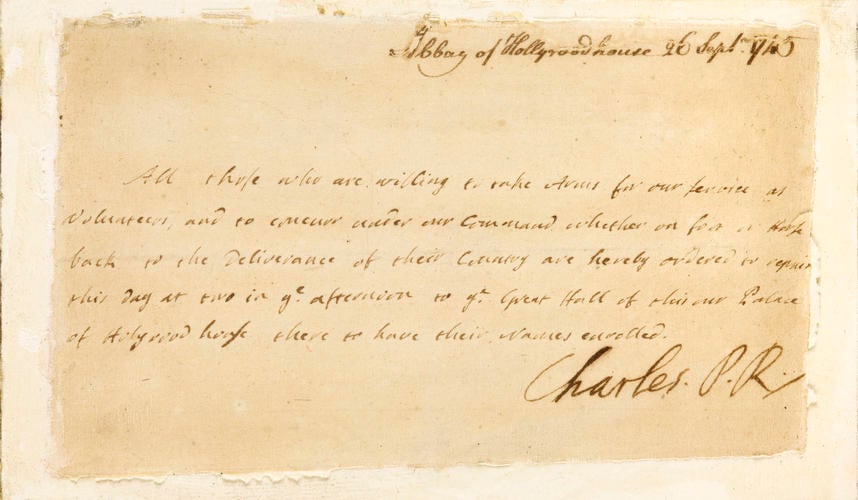 Abbay of Hollyroodhouse 26 Sepr. 1745
All those who are willing to take Arms for our service as
Volunteers, and to concur under our Command whether on foot or Horse
back to the Deliverance of their Country are hereby ordered to repair
this day at two in ye. afternoon to ye. Great Hall of this our Palace
of Holyrood house there to have their Names enrolled.
Charles. P. R.